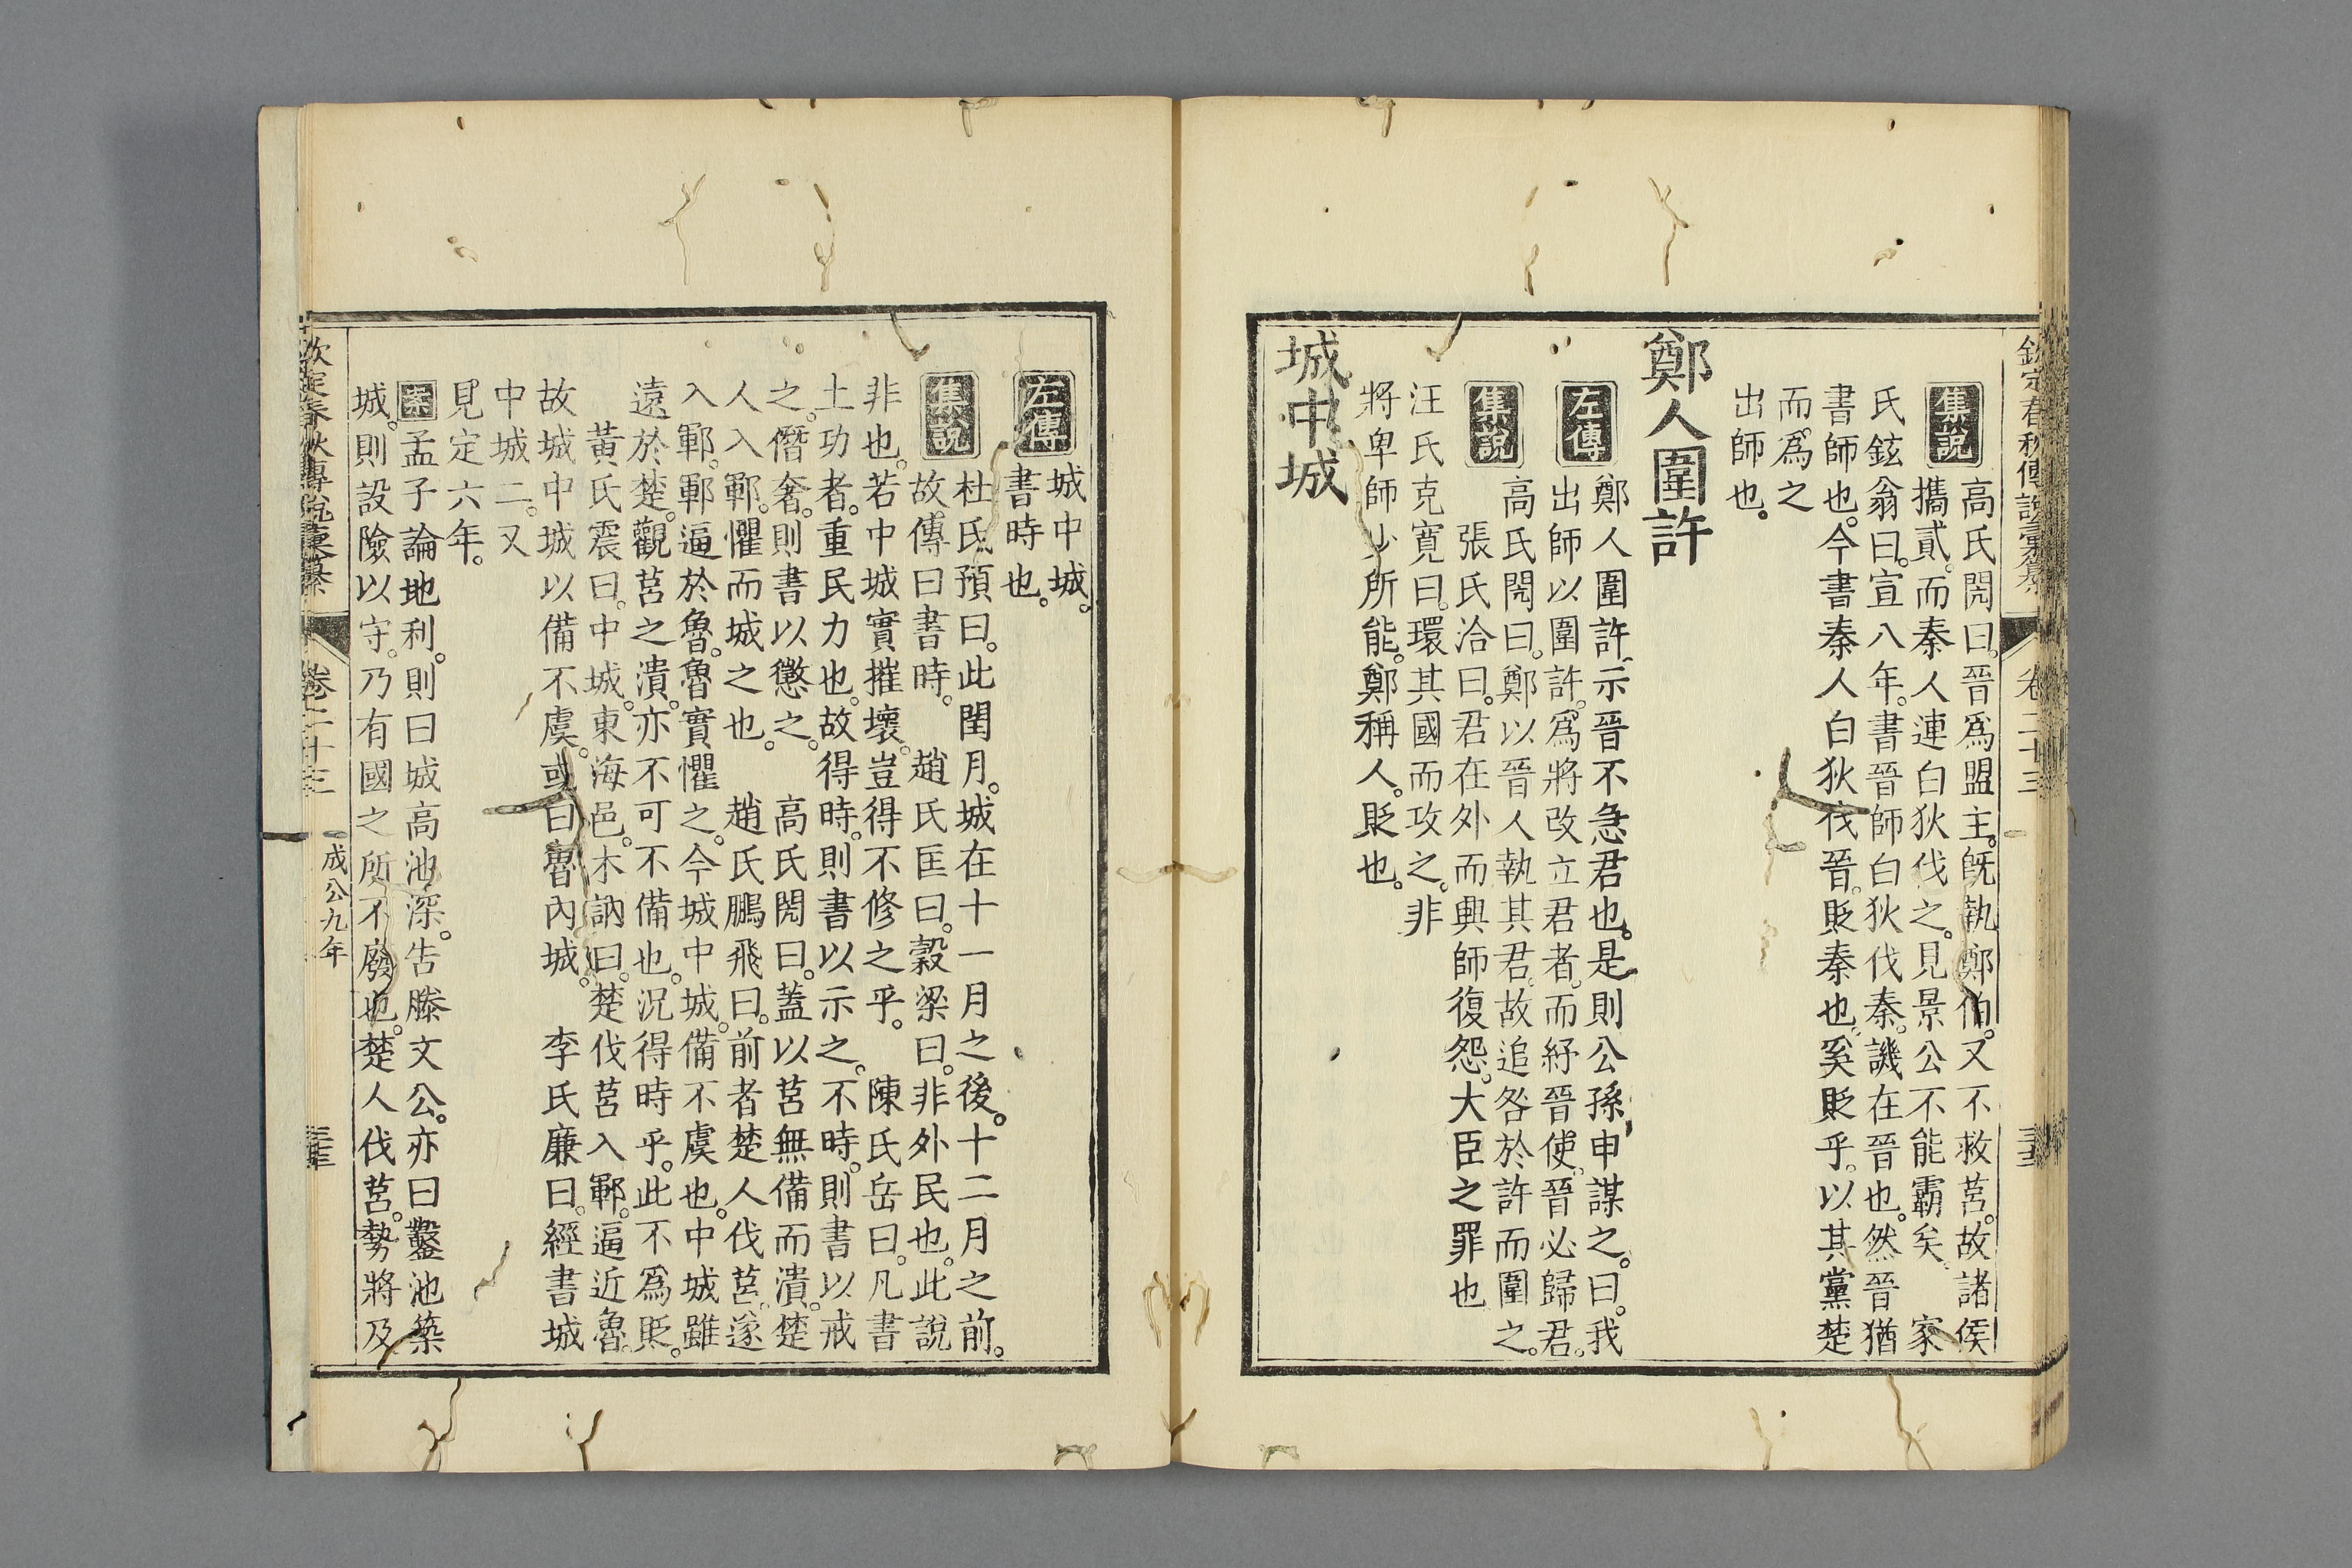 欽定春秋傳說彙纂 卷二十三
集說 高氏閌曰。晉爲盟主。旣執鄭伯。又不救莒。故諸侯
攜貳。而秦人連白狄伐之。見景公不能霸矣。 家
氏鉉翁曰。宣八年。書晉師白狄伐秦。譏在晉也。然晉猶
書師也。今書秦人白狄伐晉。貶秦也。奚貶乎。以其黨楚
而爲之
出師也。
鄭人圍許
左傳 鄭人圍許。示晉不急君也。是則公孫申謀之。曰。我
出師以圍許。爲將改立君者。而紓晉使。晉必歸君。
集說 高氏閌曰。鄭以晉人執其君。故追咎於許而圍之。
張氏洽曰。君在外而興師復怨。大臣之罪也
汪氏克寬曰。環其國而攻之。非
將卑師少所能。鄭稱人。貶也。
城中城
左傳 城中城。
書時也。
集說 杜氏預曰。此閏月。城在十一月之後。十二月之前。
故傳曰書時。 趙氏匡曰。穀梁曰。非外民也。此說
非也。若中城實摧壞。豈得不修之乎。 陳氏岳曰。凡書
土功者。重民力也。故得時。則書以示之。不時。則書以戒
之。僭奢。則書以懲之。 高氏閌曰。蓋以莒無備而潰。楚
人入鄆。懼而城之也。 趙氏鵬飛曰。前者楚人伐莒。遂
入鄆。鄆逼於魯。魯實懼之。今城中城。備不虞也。中城雖
遠於楚。觀莒之潰。亦不可不備也。況得時乎。此不爲貶。
黃氏震曰。中城。東海邑。木訥曰。楚伐莒入鄆。逼近魯。
故城中城以備不虞。或曰魯內城。 李氏廉曰。經書城
中城二。又
見定六年。
案 孟子論地利。則曰城高池深。告滕文公。亦曰鑿池築
城。則設險以守。乃有國之所不廢也。楚人伐莒。勢將及
欽定春秋傳說彙纂 卷二十三 成公九年